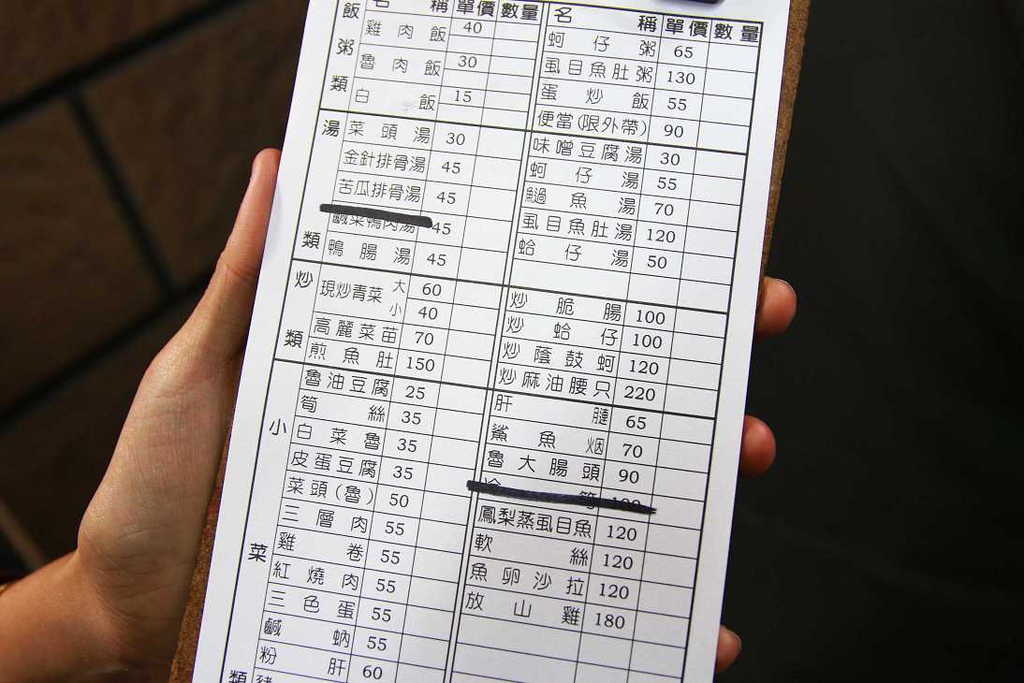 飯粥類
名稱 單價 數量
雞肉飯 40
魯肉飯 30
白飯 15
名稱 單價 數量
蚵仔粥 65
虱目魚肚粥 130
蛋炒飯 55
便當(限外帶) 90
湯類
菜頭湯 30
金針排骨湯 45
苦瓜排骨湯 45
鹹菜鴨肉湯 45
鴨腸湯 45
味噌豆腐湯 30
蚵仔湯 55
魚湯 70
虱目魚肚湯 120
蛤仔湯 50
炒類
現炒青菜 大 60
小 40
高麗菜苗 70
煎魚肚 150
炒脆腸 100
炒蛤仔 100
炒蔭鼓蚵 120
炒麻油腰只 220
小菜類
魯油豆腐 25
筍絲 35
白菜魯 35
皮蛋豆腐 35
菜頭(魯) 50
三層肉 55
雞卷 55
紅燒肉 55
三色蛋 55
鹹蚋 55
粉肝 60
肝膁 65
鯊魚烟 70
魯大腸頭 90
筍 100
鳳梨蒸虱目魚 120
軟絲 120
魚卵沙拉 120
放山雞 180